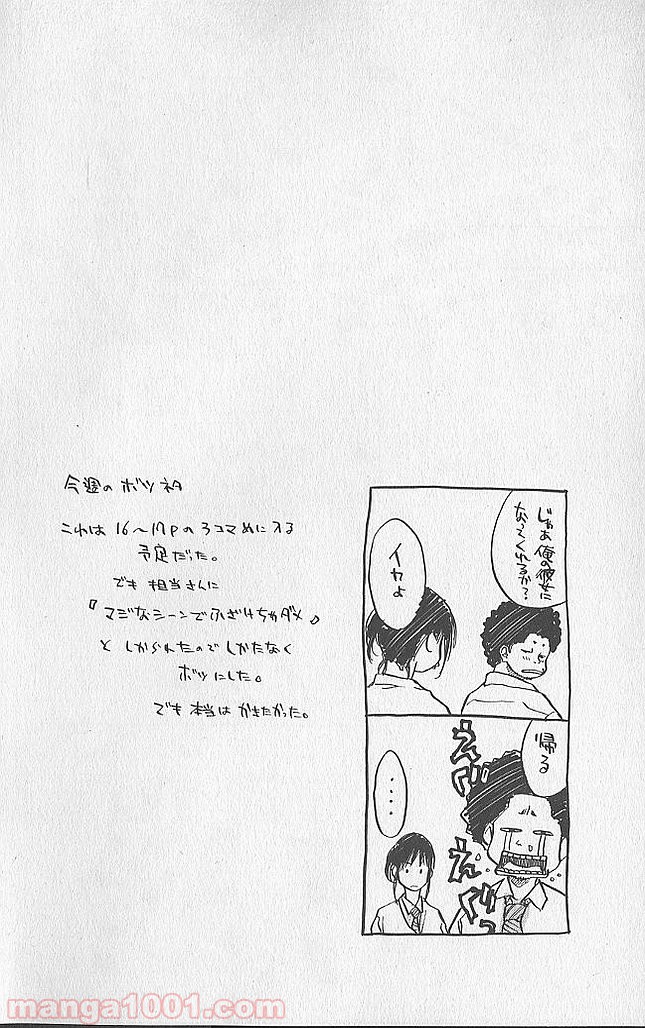 今週のボツネタ
これは16〜17Pの3コマめに入る
予定だった。
でも担当さんに
『マジなシーンでふざけちゃダメ』
としかられたのでしかたなく
ボツにした。
でも本当はかきたかった。
じゃあ俺の彼女に
なってくれるか？
イヤよ
帰る
えぐっ
えぐっ
‥‥
manga1001.com